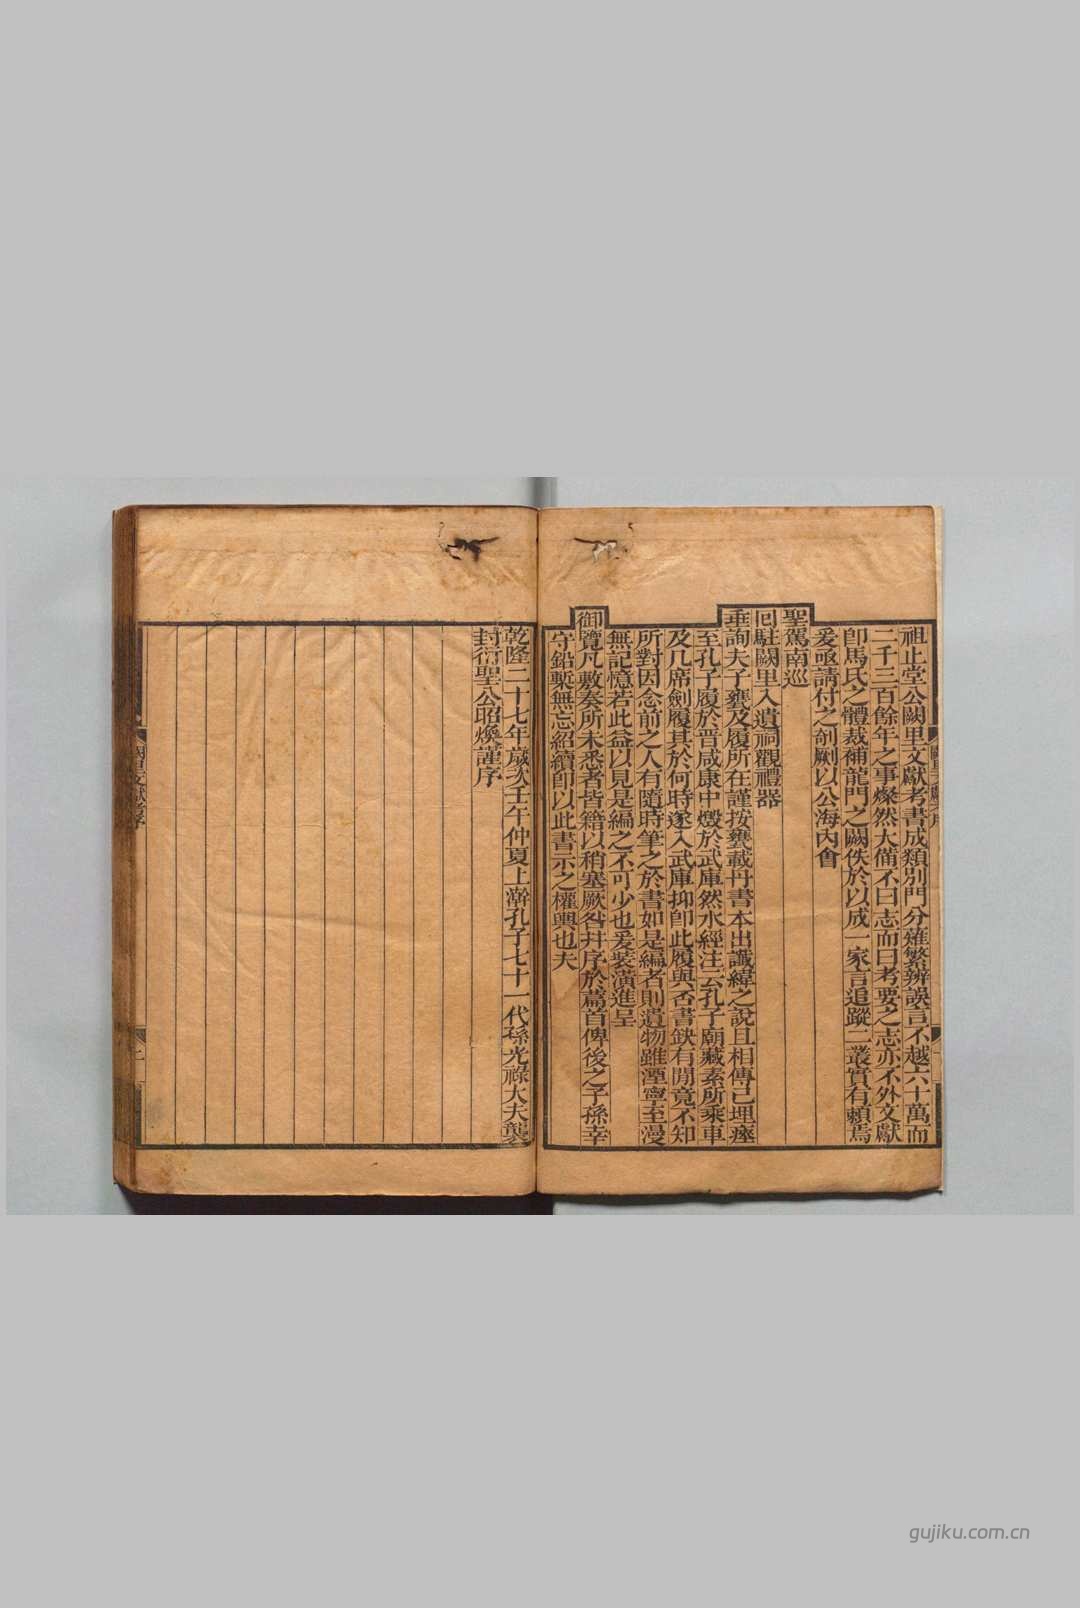 祖止堂公闕里文獻考書成類別門分薙繁辨誤言不越六十萬而
二千三百餘年之事燦然大備不曰志而曰考要之志亦不外文獻
卽馬氏之體裁補龍門之闕佚於以成一家言追蹤一叢實有賴焉
爰亟請付之剞劂以公海內會
聖駕南巡
回駐闕里入遺祠觀禮器
垂詢夫子甕及履所在謹按甕載丹書本出讖緯之說且相傳已埋瘞
至孔子履於晉咸康中燬於武庫然水經注云孔子廟藏素所乘車
及几席劍履其於何時遂入武庫抑卽此履與否書缺有閒竟不知
所對因念前之人有隨時筆之於書如是編者則遺物雖湮寧至漫
無記憶若此益以見是編之不可少也爰裝潢進呈
御覽凡敷奏所未悉者皆籍以稍塞厥咎幷序於篇首俾後之子孫幸
守鉛槧無忘紹續卽以此書示之權輿也夫
乾隆二十七年歲次壬午仲夏上澣孔子七十一代孫光祿大夫襲
封衍聖公昭煥謹序
gujiku.com.cn